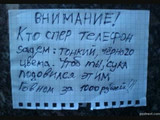 ВНИМАНИЕ!
КТО СПЕР ТЕЛЕФОН
ЗАДЕМ: ТОНКИЙ, ЧЁРНОГО
ЦВЕТА. ЧТОБ ТЫ, СУКА
ПОДАВИЛСЯ ЭТИМ
ГОВНОМ ЗА 1000 РУБЛЕЙ!!